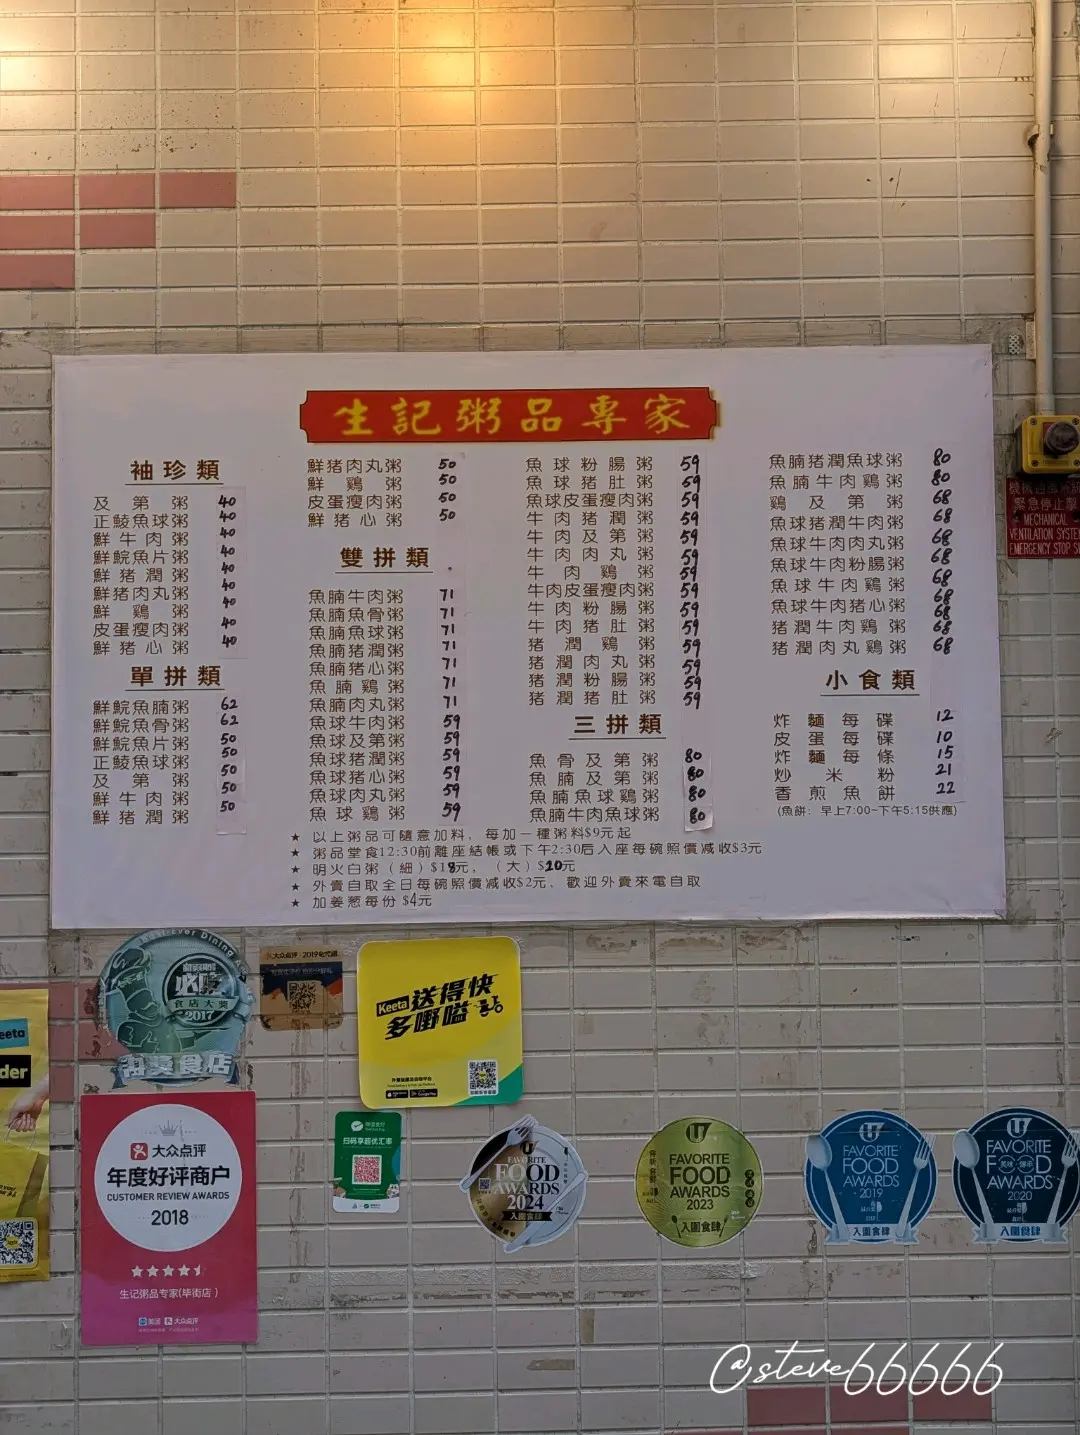 生記粥品專家
袖珍類
及第粥 40
正鯪魚球粥 40
鮮牛肉粥 40
鮮鯇魚片粥 40
鮮猪潤粥 40
鮮猪肉丸粥 40
鮮鷄粥 40
皮蛋瘦肉粥 40
鮮猪心粥 40
單拼類
鮮鯇魚腩粥 62
鮮鯇魚骨粥 62
鮮鯇魚片粥 50
正鯪魚球粥 50
及第粥 50
鮮牛肉粥 50
鮮猪潤粥 50
鮮猪肉丸粥 50
鮮鷄粥 50
皮蛋瘦肉粥 50
鮮猪心粥 50
雙拼類
魚腩牛肉粥 71
魚腩魚骨粥 71
魚腩魚球粥 71
魚腩猪潤粥 71
魚腩猪心粥 71
魚腩鷄粥 71
魚腩肉丸粥 71
魚球牛肉粥 59
魚球及第粥 59
魚球猪潤粥 59
魚球猪心粥 59
魚球肉丸粥 59
魚球鷄粥 59
魚球粉腸粥 59
魚球猪肚粥 59
魚球皮蛋瘦肉粥 59
牛肉猪潤粥 59
牛肉及第粥 59
牛肉肉丸粥 59
牛肉鷄粥 59
牛肉皮蛋瘦肉粥 59
牛肉粉腸粥 59
牛肉猪肚粥 59
猪潤鷄粥 59
猪潤肉丸粥 59
猪潤粉腸粥 59
猪潤猪肚粥 59
三拼類
魚骨及第粥 80
魚腩及第粥 80
魚腩魚球鷄粥 80
魚腩牛肉魚球粥 80
魚腩猪潤魚球粥 80
魚腩牛肉鷄粥 80
鷄及第粥 68
魚球猪潤牛肉粥 68
魚球牛肉肉丸粥 68
魚球牛肉粉腸粥 68
魚球牛肉鷄粥 68
魚球牛肉猪心粥 68
猪潤牛肉鷄粥 68
猪潤肉丸鷄粥 68
小食類
炸麵每碟 12
皮蛋每碟 10
炸麵每條 15
炒米粉 21
香煎魚餅 22
(魚餅: 早上7:00-下午5:15供應)
★ 以上粥品可隨意加料，每加一種粥料$9元起
★ 粥品堂食12:30前離座結帳或下午2:30后入座每碗照價减收$3元
★ 明火白粥（細）$18元，（大）$20元
★ 外賣自取全日每碗照價减收$2元，歡迎外賣來電自取
★ 加姜葱每份 $4元
MECHANICAL
VENTILATION SYSTE
EMERGENCY STOP S
Best-Ever Dining
必吃
食店大獎
2017
大众点评·2019
Keeta 送得快
多嘢嗌
eeta
der
大众点评
年度好评商户
CUSTOMER REVIEW AWARDS
2018
生记粥品专家(毕街店)
美团 大众点评
扫码享超优汇率
FAVORITE
FOOD
AWARDS
2024
入圍食肆
U
FAVORITE
FOOD
AWARDS
2023
入圍食肆
U
FAVORITE
FOOD
AWARDS
2019
入圍食肆
U
FAVORITE
FOOD
AWARDS
2020
入圍食肆
@steve66666